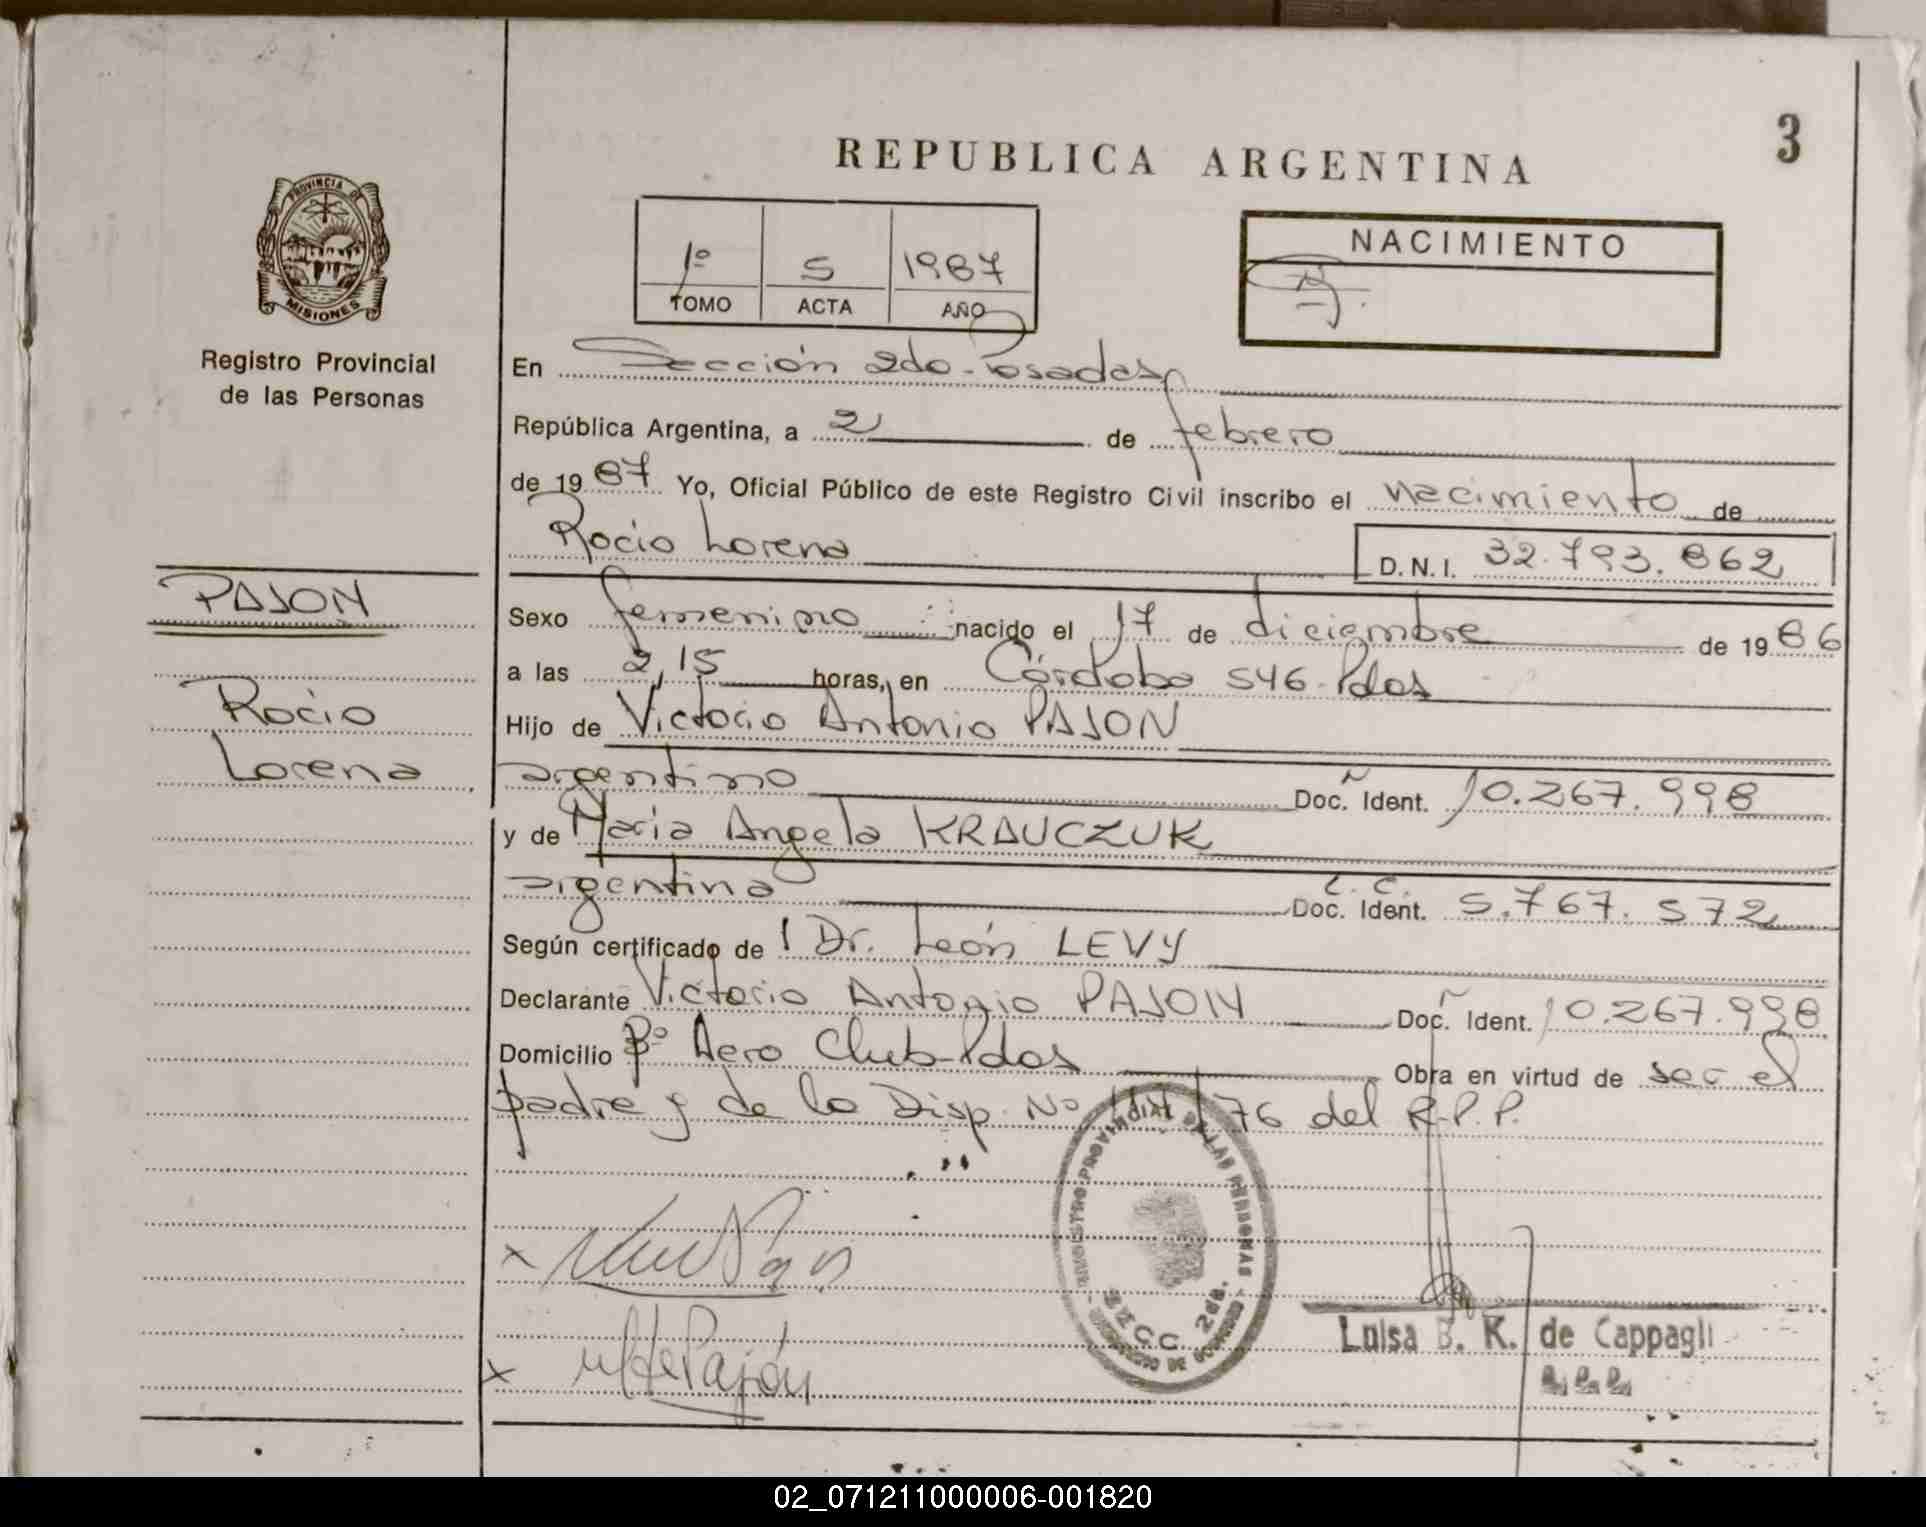 3
REPUBLICA ARGENTINA
PROVINCIA DE
MISIONES
Registro Provincial
de las Personas
1º 5 1987
TOMO ACTA AÑO
NACIMIENTO
En Sección 2da. Posadas
República Argentina, a 2 de febrero
de 1987 Yo, Oficial Público de este Registro Civil inscribo el nacimiento de
Rocio Lorena D.N.I. 32.793.862
PAJON
Sexo femenino nacido el 17 de diciembre de 1986
a las 2,15 horas, en Córdoba 546-Pdas
Rocio
Hijo de Victorio Antonio PAJON
Lorena
argentino Doc. Ident. 10.267.998
y de Maria Angela KRAUCZUK
argentina L.C. Doc. Ident. 5.767.572
Según certificado de Dr. León LEVY
Declarante Victorio Antonio PAJON Doc. Ident. 10.267.998
Domicilio Bº Aero Club-Pdas Obra en virtud de ser el
padre y de la Disp. Nº /76 del R.P.P.
REGISTRO PROVINCIAL DE LAS PERSONAS
SECC. 2da.
MINISTERIO DE GOBIERNO
x
x de Pajón
Luisa B. K. de Cappagli
02_071211000006-001820